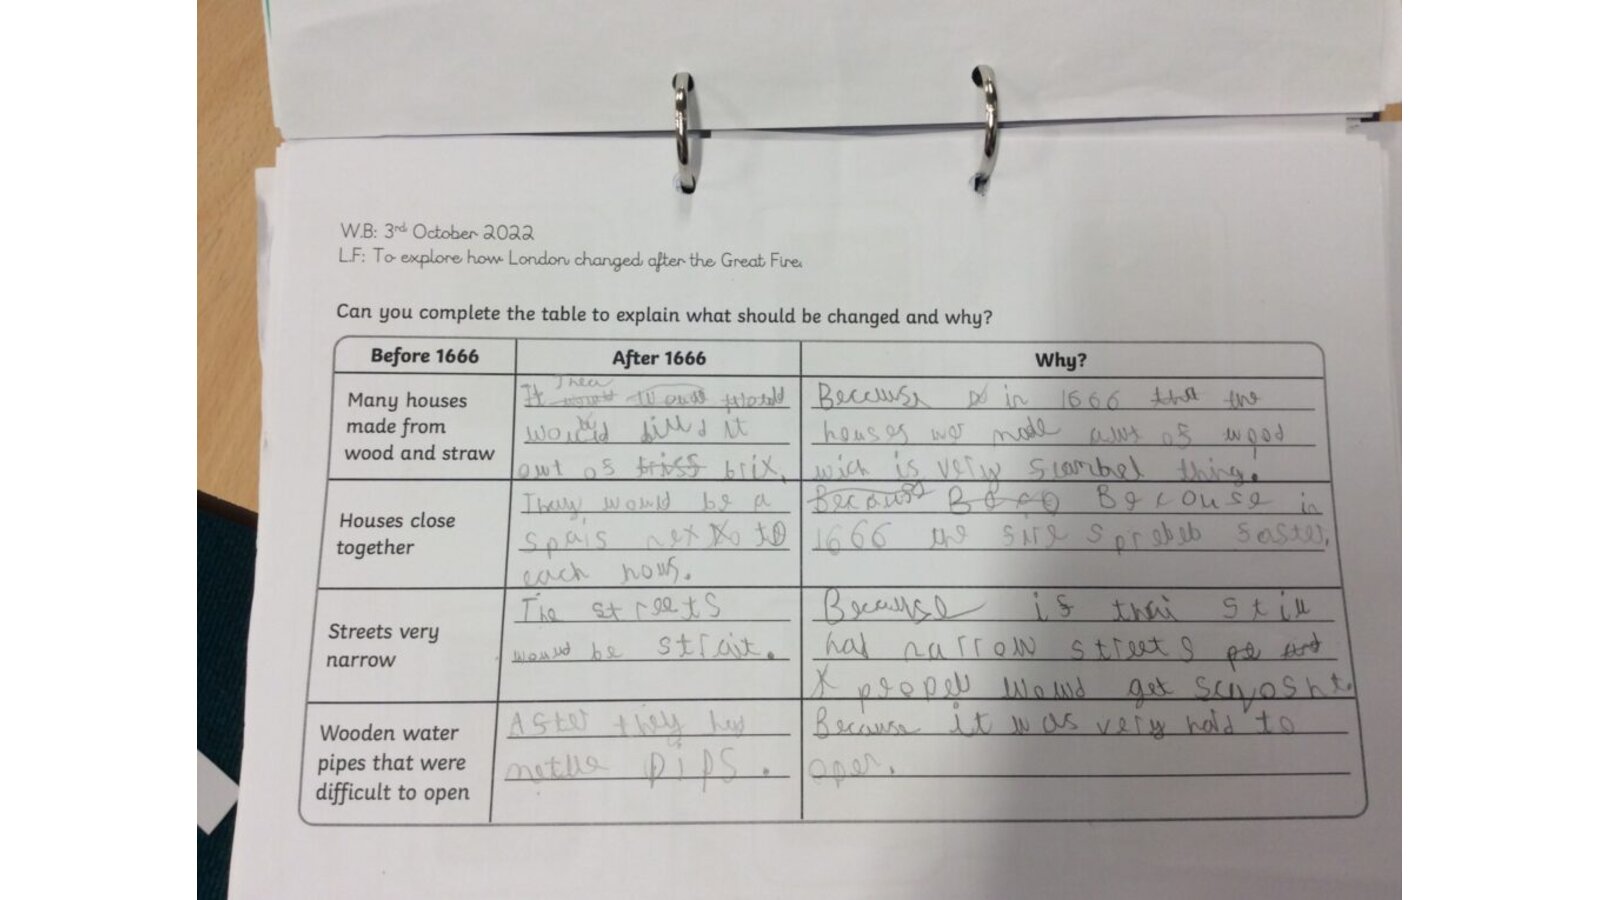 W.B: 3rd October 2022
L.F: To explore how London changed after the Great Fire.
Can you complete the table to explain what should be changed and why?
Before 1666
After 1666
Why?
Many houses
made from
wood and straw
It
would be it
out of brix.
Because in 1666 the
houses wer made awt of wood
wich is very thing.
Houses close
together
Thay would be a
spais nex to
each hows.
Because in
1666 the fire spreded faster.
Streets very
narrow
The streets
would be strait.
Because if thai still
had narrow streets
would get
Wooden water
pipes that were
difficult to open
After they had
pips.
Because it was very hard to
open.